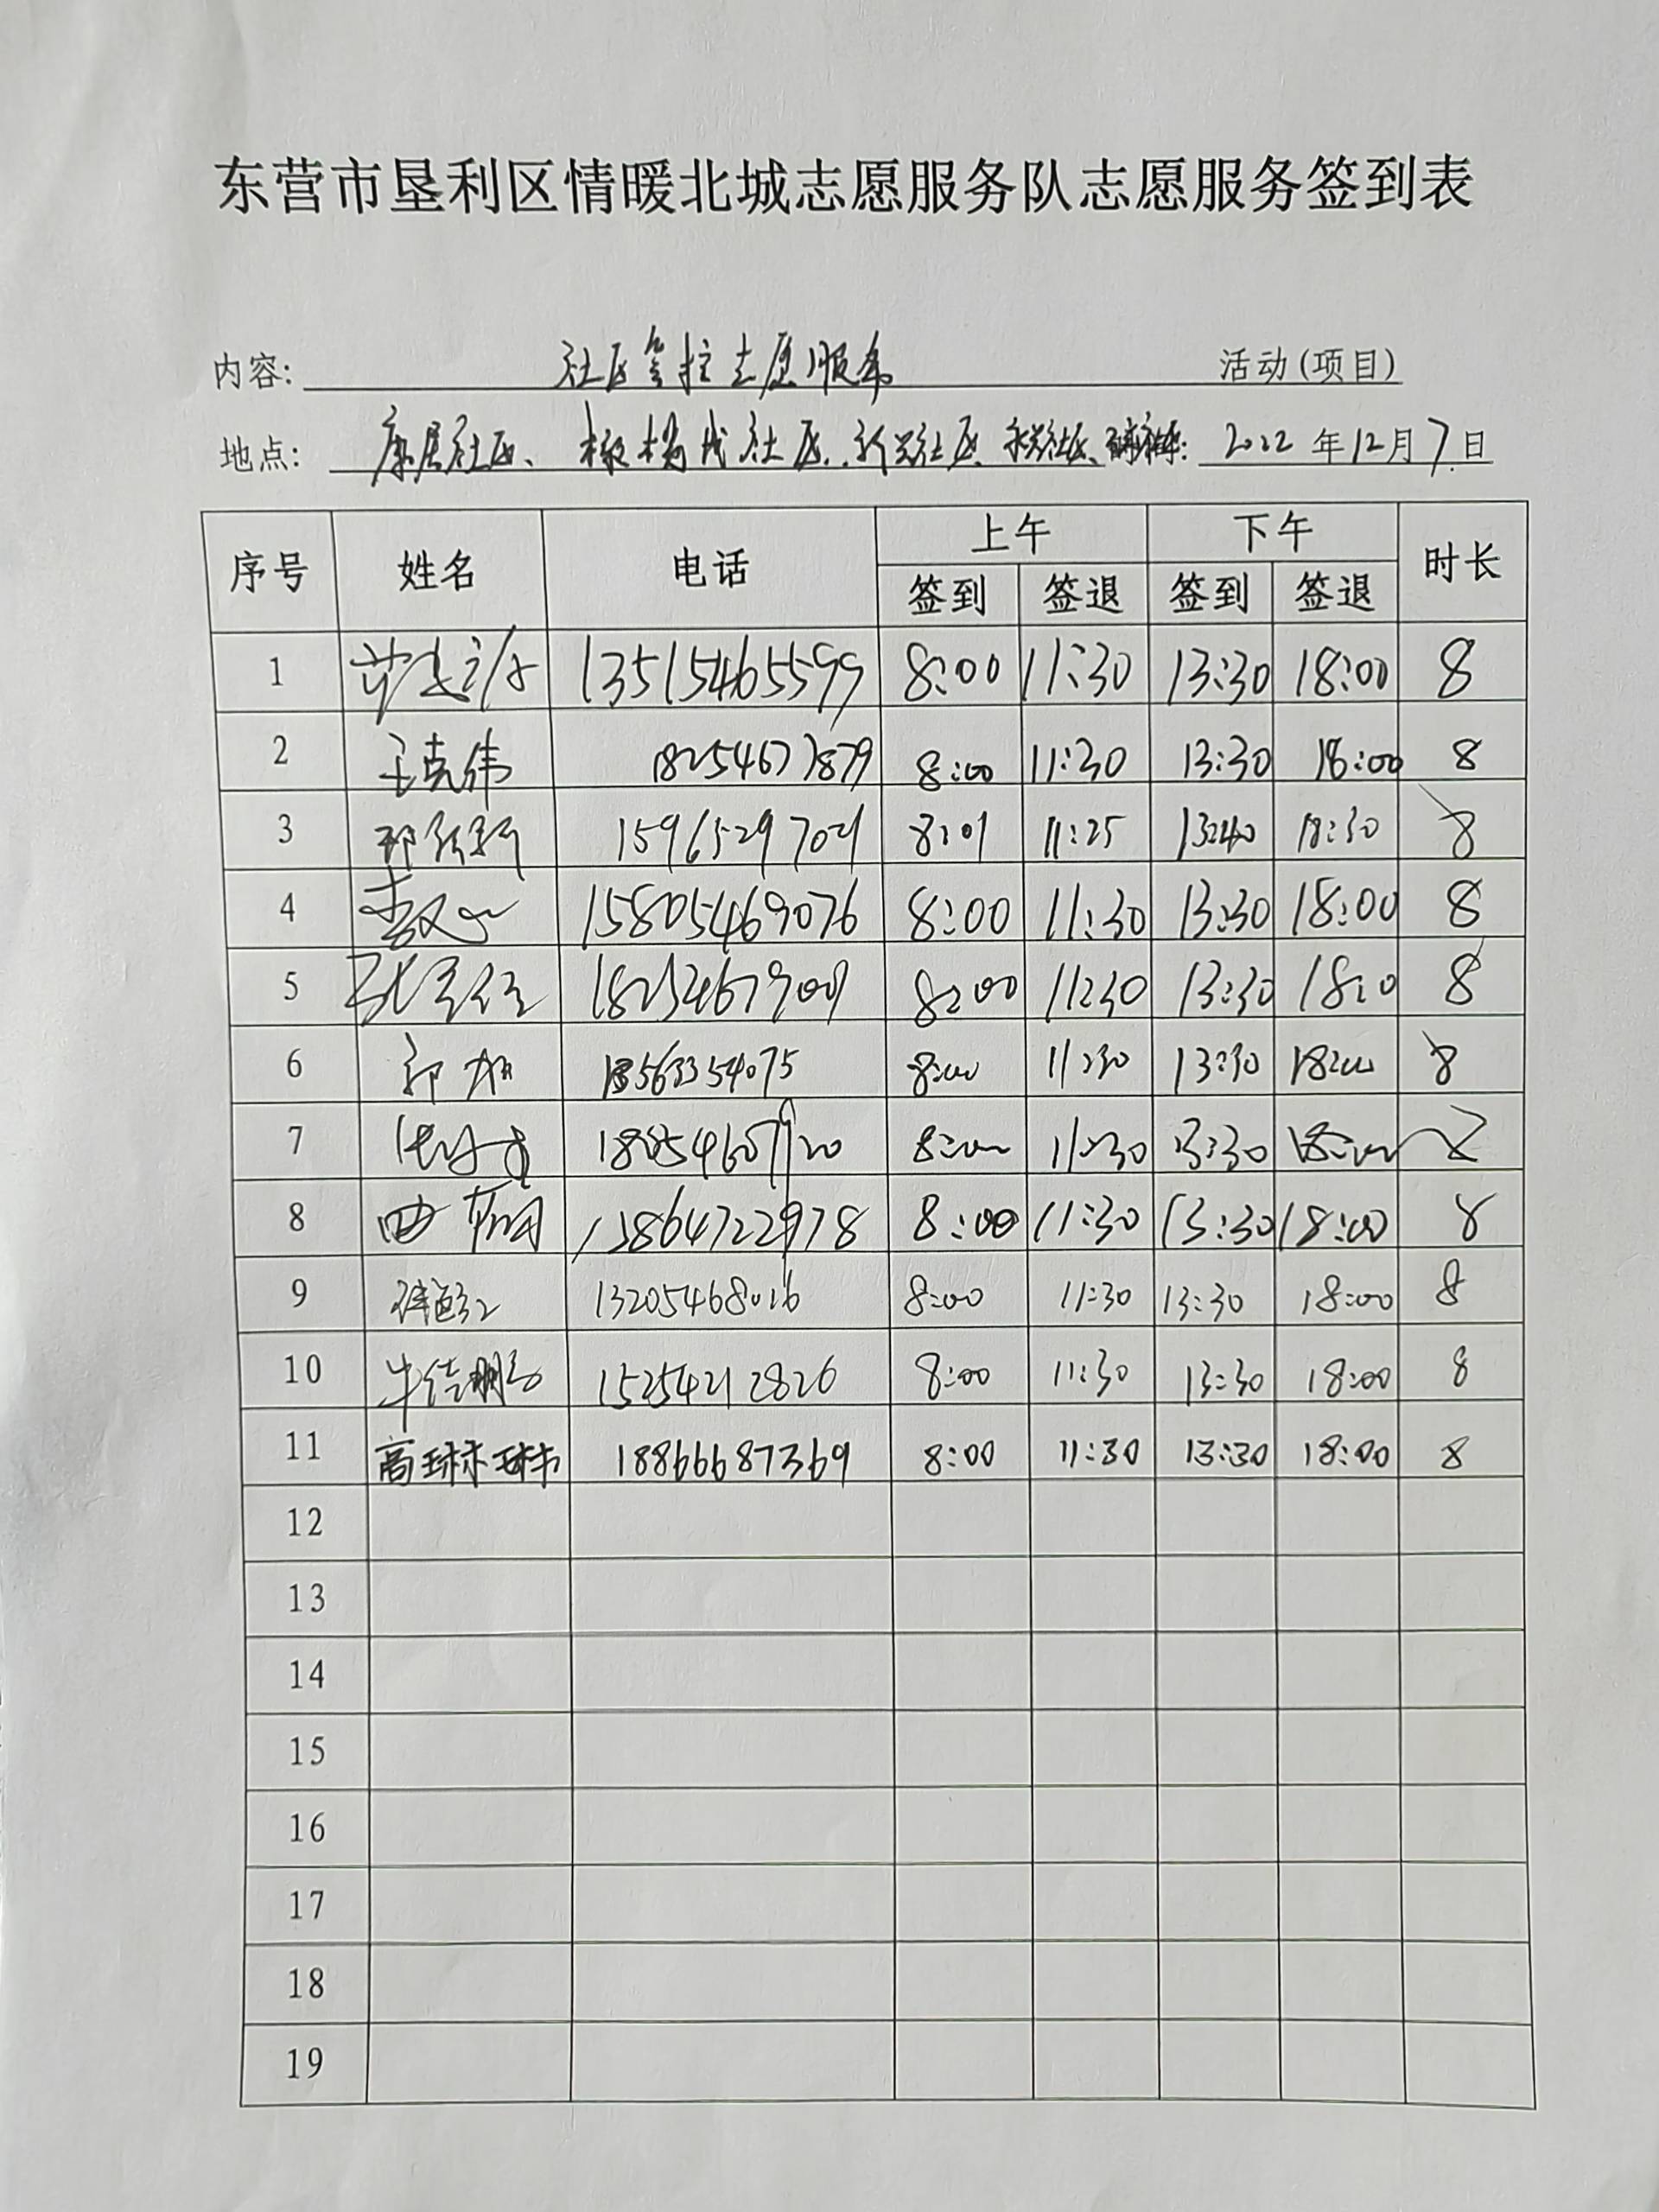 东营市垦利区情暖北城志愿服务队志愿服务签到表
内容: 社区管控志愿服务 活动(项目)
地点: 康居社区、橄榄城社区、新兴社区、永兴社区、 2022年12月7日
序号 姓名 电话 上午 下午 时长
签到 签退 签到 签退
1 13515465599 8:00 11:30 13:30 18:00 8
2 王克伟 18254677879 8:00 11:30 13:30 18:00 8
3 8:01 11:25 13:40 18:30 8
4 15805469076 8:00 11:30 13:30 18:00 8
5 8:00 11:30 13:30 18:0 8
6 郭旭 8:00 11:30 13:30 18:00 8
7 8:00 11:30 13:30 18:00 8
8 曲 13864722978 8:00 11:30 13:30 18:00 8
9 13205468016 8:00 11:30 13:30 18:00 8
10 牛佳鹏 15254212826 8:00 11:30 13:30 18:00 8
11 高琳琳 18866687369 8:00 11:30 13:30 18:00 8
12
13
14
15
16
17
18
19